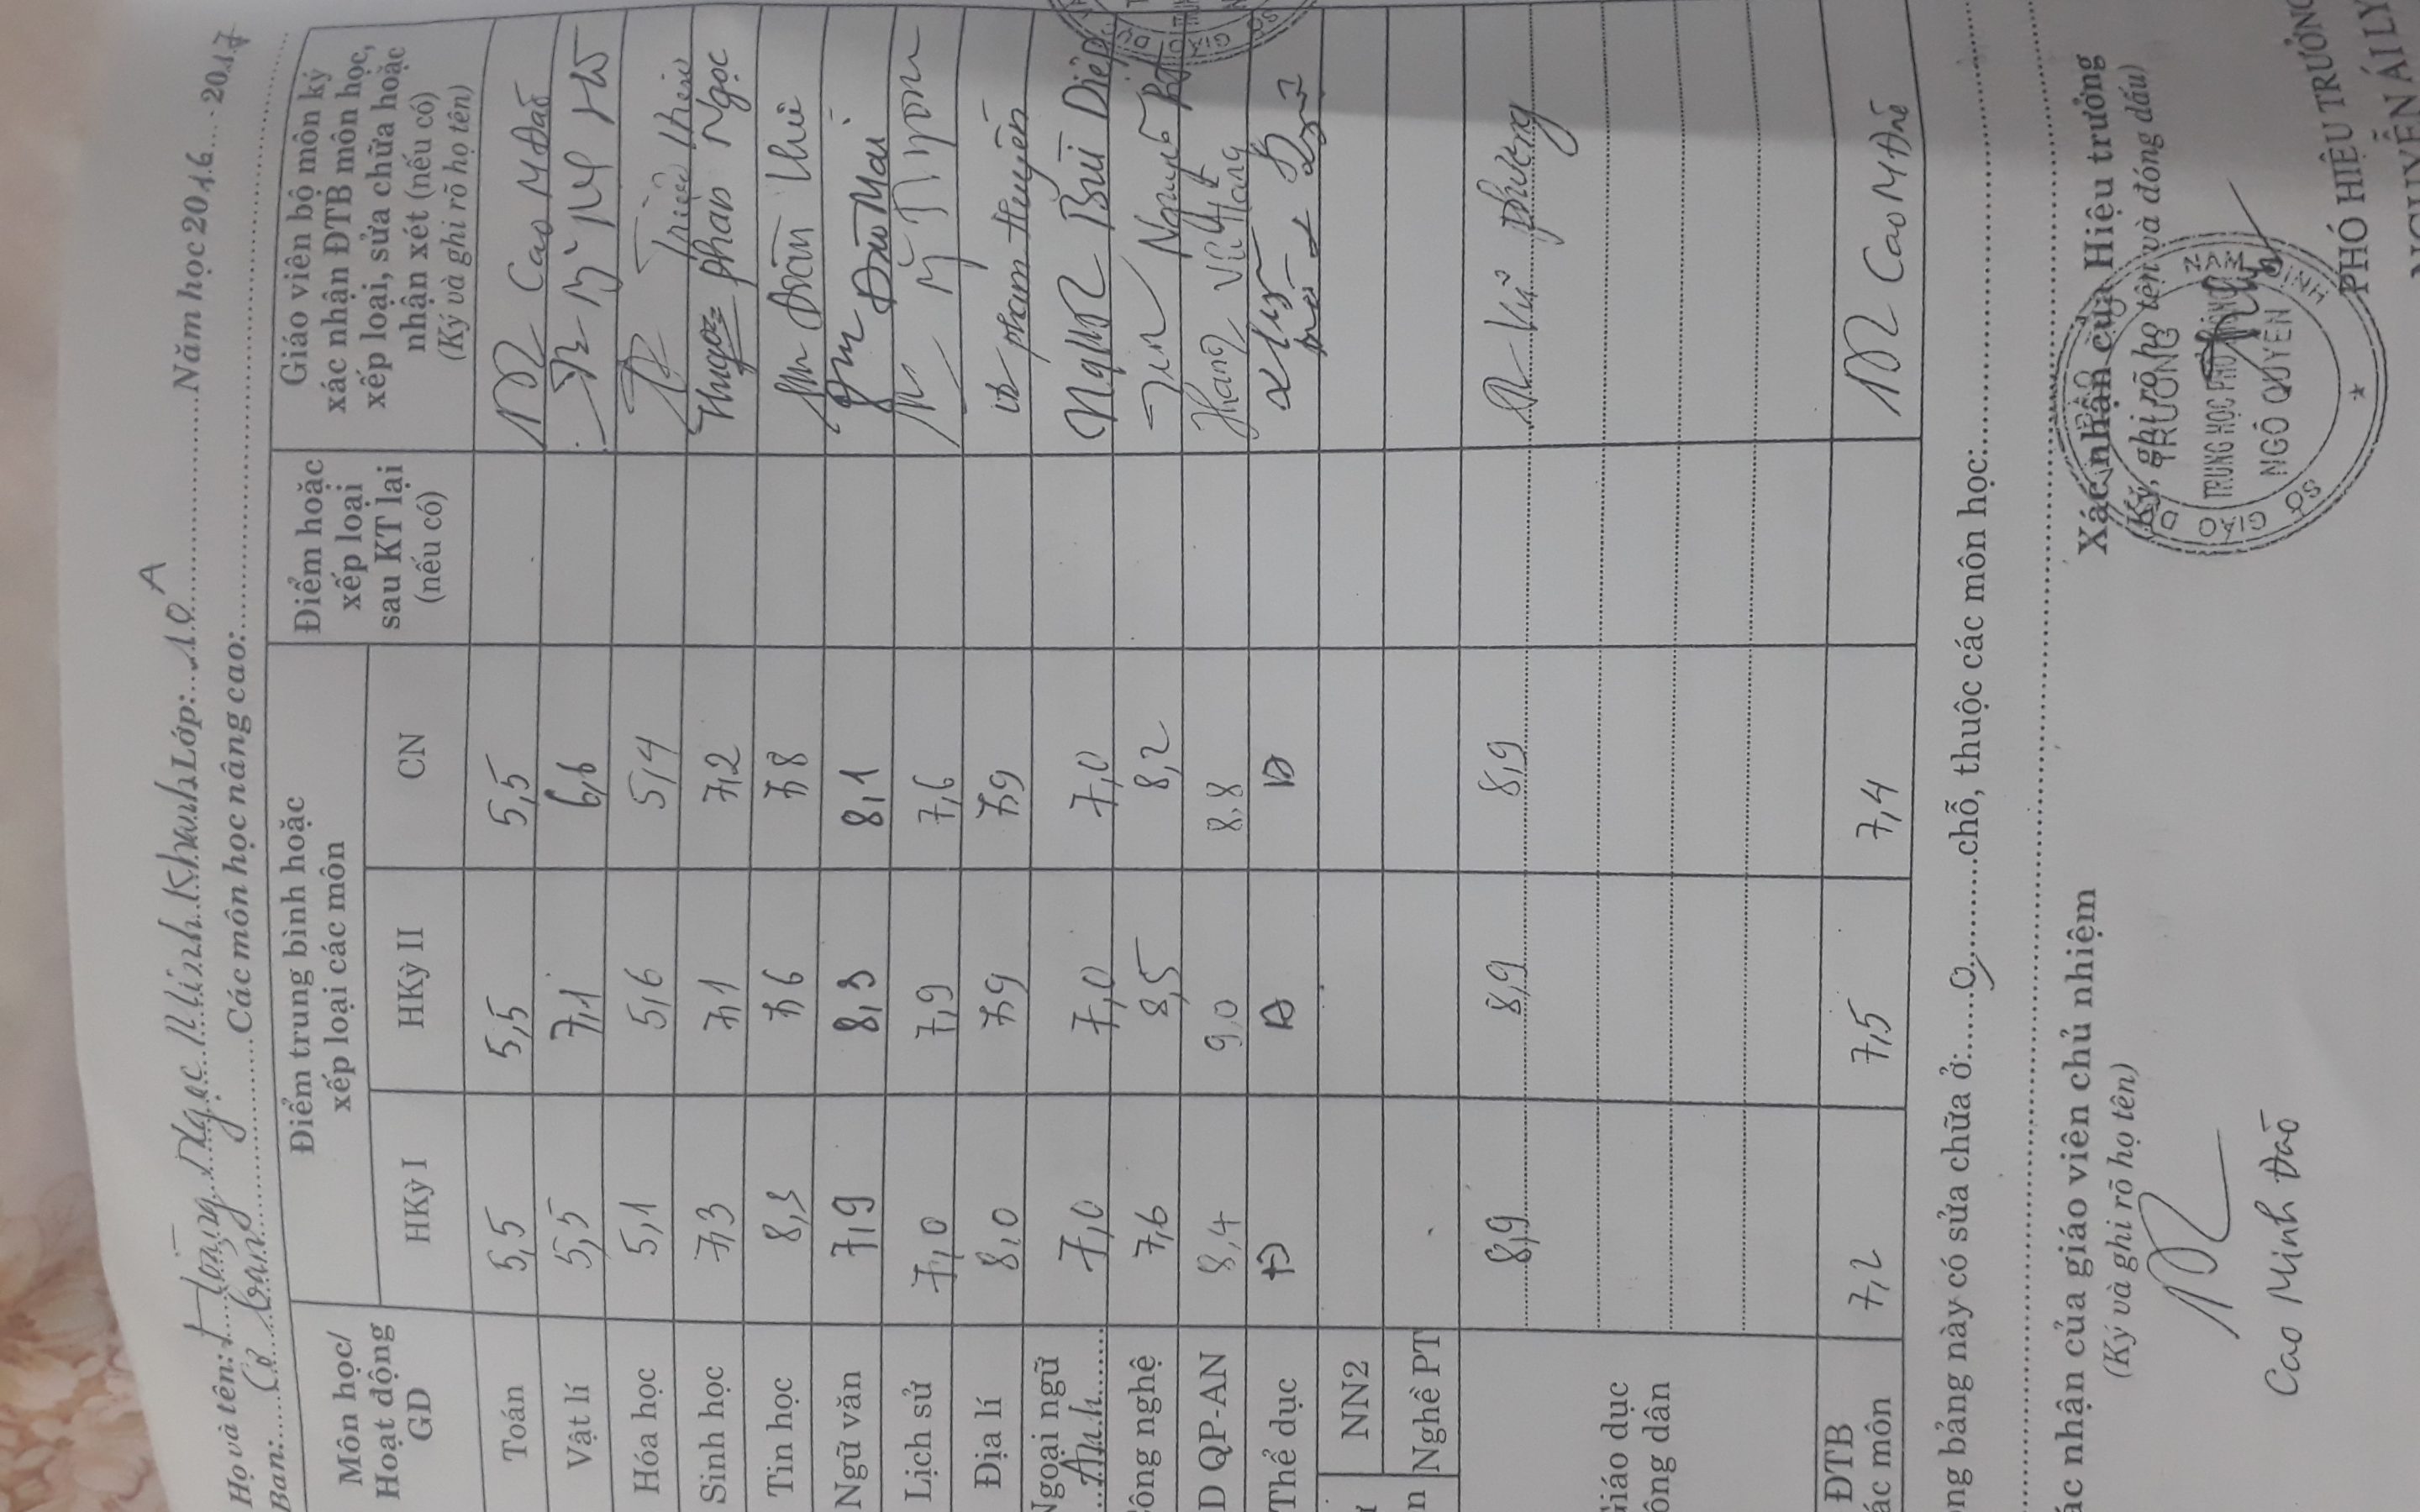 Họ và tên: Hoàng Ngọc Minh Khanh Lớp: 10A Năm học 2016 - 2017
Ban: Cơ bản Các môn học nâng cao:
Môn học/ Hoạt động GD
Điểm trung bình hoặc xếp loại các môn
Điểm hoặc xếp loại sau KT lại (nếu có)
Giáo viên bộ môn ký xác nhận ĐTB môn học, xếp loại, sửa chữa hoặc nhận xét (nếu có) (Ký và ghi rõ họ tên)
HKỳ I HKỳ II CN
Toán 5,5 5,5 5,5 Cao M Đảo
Vật lí 5,5 7,1 6,6
Hóa học 5,1 5,6 5,4
Sinh học 7,3 7,1 7,2 Phan Ngọc
Tin học 8,3 7,6 7,8 Đoàn
Ngữ văn 7,9 8,3 8,1 Đào Mai
Lịch sử 7,0 7,9 7,6
Địa lí 8,0 7,9 7,9 Phạm Huyền
Ngoại ngữ Anh 7,0 7,0 7,0 Bùi Diệp
ông nghệ 7,6 8,5 8,2
D QP-AN 8,4 9,0 8,8 Vũ Hằng
Thể dục Đ Đ Đ
NN2
Nghề PT
iáo dục
ông dân 8,9 8,9 8,9 Phương
ĐTB
ác môn 7,2 7,5 7,4 Cao M Đảo
ng bảng này có sửa chữa ở: 0 chỗ, thuộc các môn học:
ác nhận của giáo viên chủ nhiệm
(Ký và ghi rõ họ tên)
Cao Minh Đảo
Xác nhận của Hiệu trưởng
(Ký, ghi rõ họ tên và đóng dấu)
TRƯỜNG
TRUNG HỌC PHỔ THÔNG
NGÔ QUYỀN
PHÓ HIỆU TRƯỞNG
NGUYỄN ÁI LY